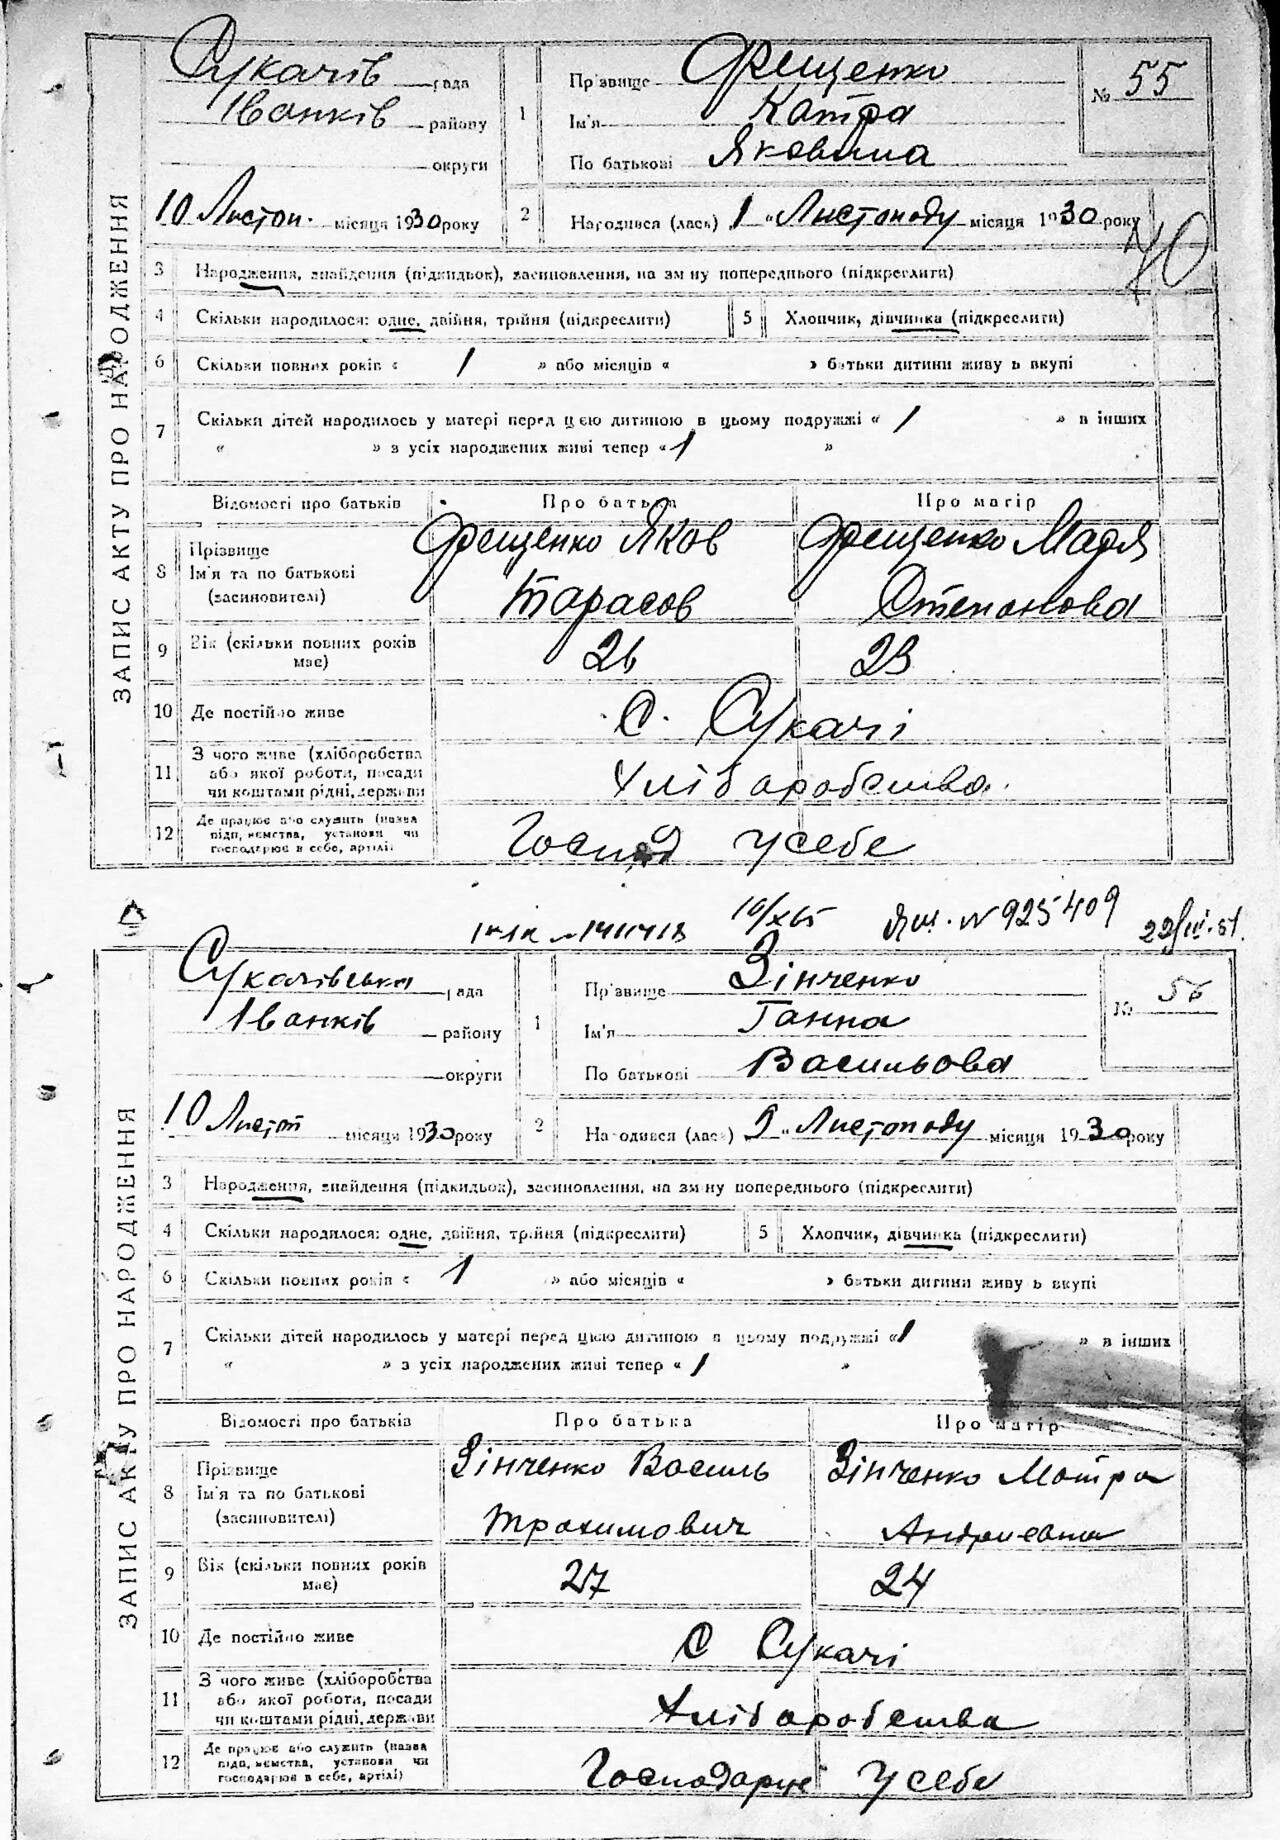 ЗАПИС АКТУ ПРО НАРОДЖЕННЯ
Сукачів рада
Іванків району
округи
10 Листоп. місяця 1930 року
1 Прізвище Орещенко
Ім'я Катра
По батькові Яковина
№ 55
2 Народився (лась) 1 "Листопаду місяця 1930 року
70
3 Народження, знайдення (підкидьок), засиновлення, на зміну попереднього (підкреслити)
4 Скільки народилося: одне, двійня, трійня (підкреслити)
5 Хлопчик, дівчинка (підкреслити)
6 Скільки повних років « 1 » або місяців « » батьки дитини живуть вкупі
7 Скільки дітей народилось у матері перед цією дитиною в цьому подружжі « 1 » в інших
« » з усіх народжених живі тепер « 1 »
Відомості про батьків Про батька Про матір
8 Прізвище Ім'я та по батькові (засиновителі)
Орещенко Яков Тарасов
Орещенко Марія Степанова
9 Вік (скільки повних років має) 26 23
10 Де постійно живе с. Сукачі
11 З чого живе (хліборобства або якої роботи, посади чи коштами рідні, держави Хліборобства
12 Де працює або служить (назва підприємства, установи чи господарює в себе, артілі) Господ у себе
10/X 65 № 925409 22/III-51.
ЗАПИС АКТУ ПРО НАРОДЖЕННЯ
Сукачівська рада
Іванків району
округи
10 Листоп місяця 1930 року
1 Прізвище Зінченко
Ім'я Ганна
По батькові Васильова
№ 56
2 Народився (лась) 9 "Листопаду місяця 1930 року
3 Народження, знайдення (підкидьок), засиновлення, на зміну попереднього (підкреслити)
4 Скільки народилося: одне, двійня, трійня (підкреслити)
5 Хлопчик, дівчинка (підкреслити)
6 Скільки повних років « 1 » або місяців « » батьки дитини живуть вкупі
7 Скільки дітей народилось у матері перед цією дитиною в цьому подружжі « 1 » в інших
« » з усіх народжених живі тепер « 1 »
Відомості про батьків Про батька Про матір
8 Прізвище Ім'я та по батькові (засиновителі)
Зінченко Василь Трохимович
Зінченко Мотря Андриевна
9 Вік (скільки повних років має) 27 24
10 Де постійно живе с Сукачі
11 З чого живе (хліборобства або якої роботи, посади чи коштами рідні, держави Хліборобства
12 Де працює або служить (назва підприємства, установи чи господарює в себе, артілі) Господарює у себе